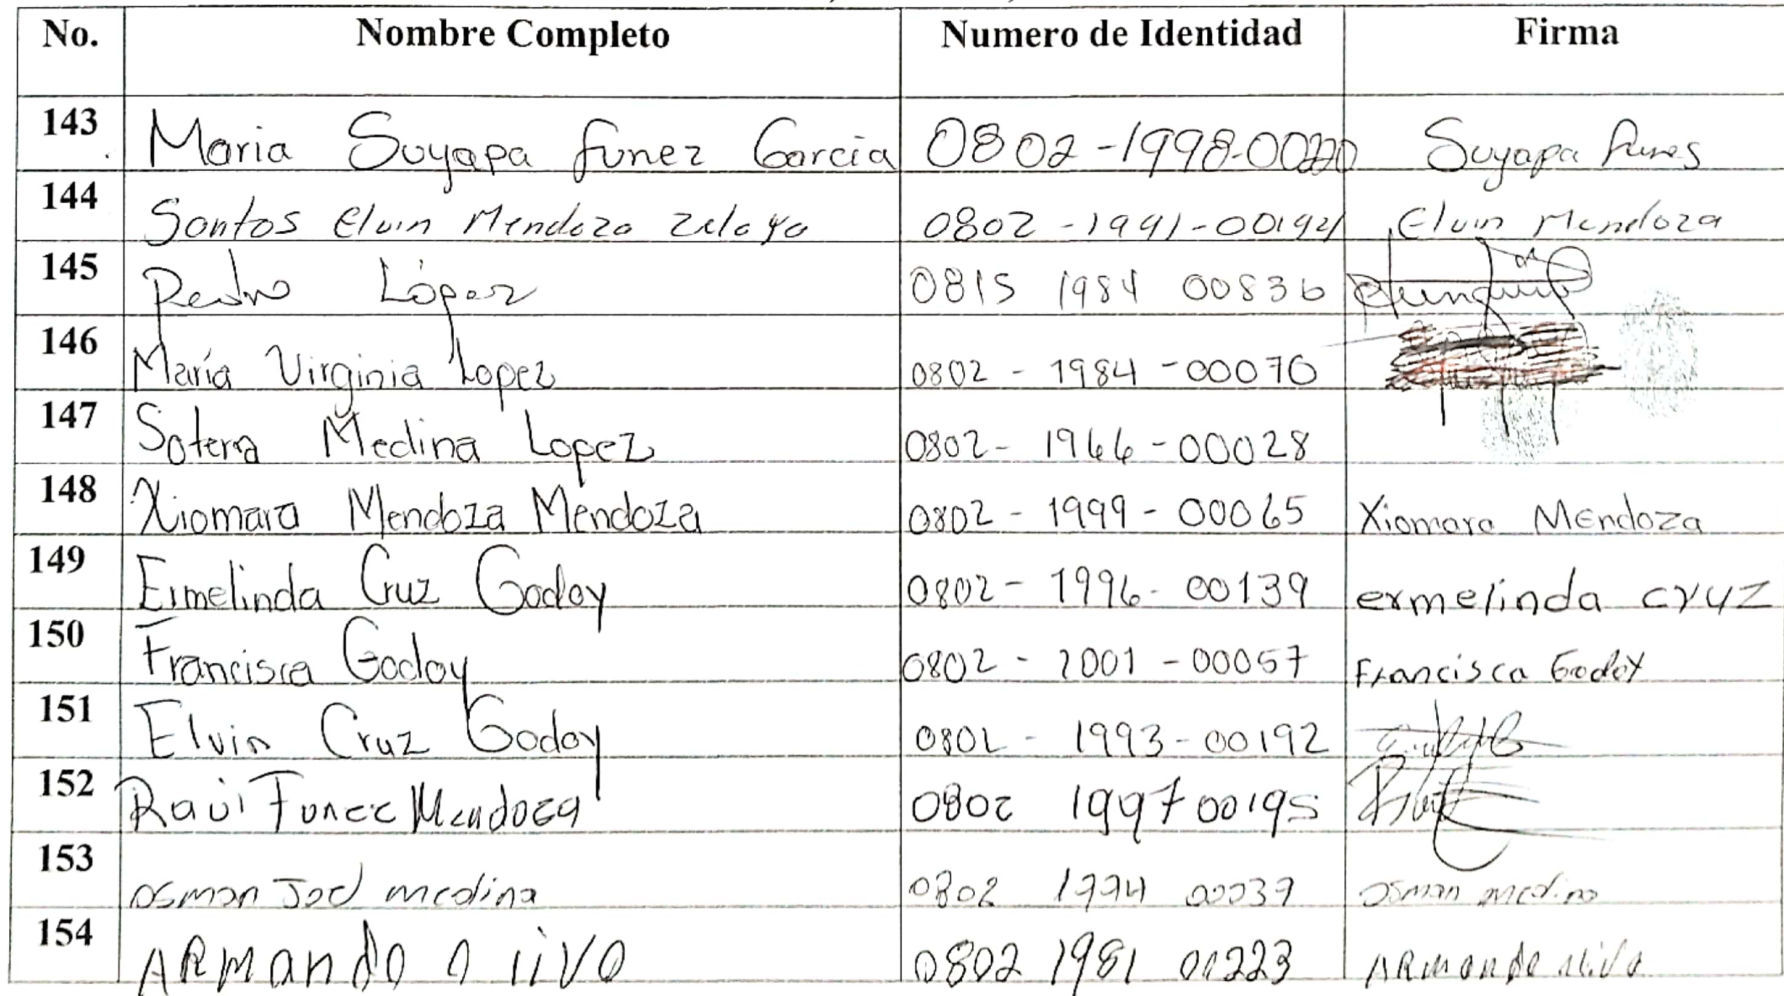 No. Nombre Completo Numero de Identidad Firma
143 Maria Suyapa funez Garcia 0802-1998-00220 Suyapa funes
144 Santos Elvin Mendoza Zelaya 0802-1991-00194 Elvin Mendoza
145 Pedro López 0815 1984 00836
146 María Virginia Lopez 0802-1984-00070
147 Sotera Medina Lopez 0802-1966-00028
148 Xiomara Mendoza Mendoza 0802-1999-00065 Xiomara Mendoza
149 Ermelinda Cruz Godoy 0802-1996-00139 ermelinda cruz
150 Francisca Godoy 0802-2001-00057 Francisca Godoy
151 Elvin Cruz Godoy 0802-1993-00192
152 Raul Funez Mendoza 0802 1997 00195
153 Osman Joel medina 0802 1994 00039 Osman medina
154 ARMando Olivo 0802 1981 00223 ARMando olivo